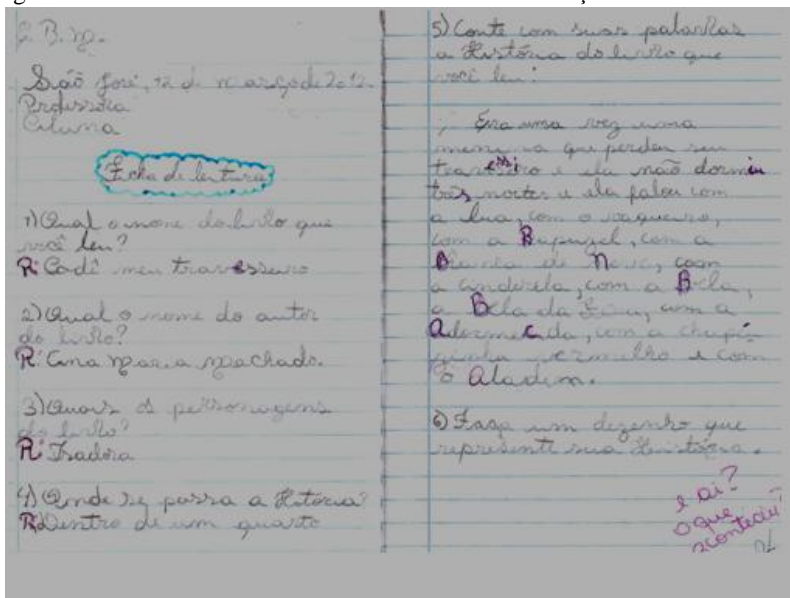 São José, 12 de março de 2012.
Professora
Aluna
Ficha de leitura
1) Qual o nome do livro que
você leu?
R: Cadê meu travesseiro
2) Qual o nome do autor
do livro?
R: Ana Maria Machado.
3) Quais os personagens
do livro?
R: Isadora
4) Onde se passa a Hitoria?
R: Dentro de um quarto
5) Conte com suas palavras
a História do livro que
você leu:
Era uma vez uma
menina que perdeu seu
travessiro e ela não dormiu
três noites e ela falou com
a lua, com o vaqueiro,
com a Rapunzel, com a
Branca de Neve, com
a cinderela, com a Bela,
a Bela da Fera, com a
Adormecida, com a chapé-
zinha vermelho e com
o Aladim.
6) Faça um dezenho que
represente sua História.
e aí?
o que
aconteceu?